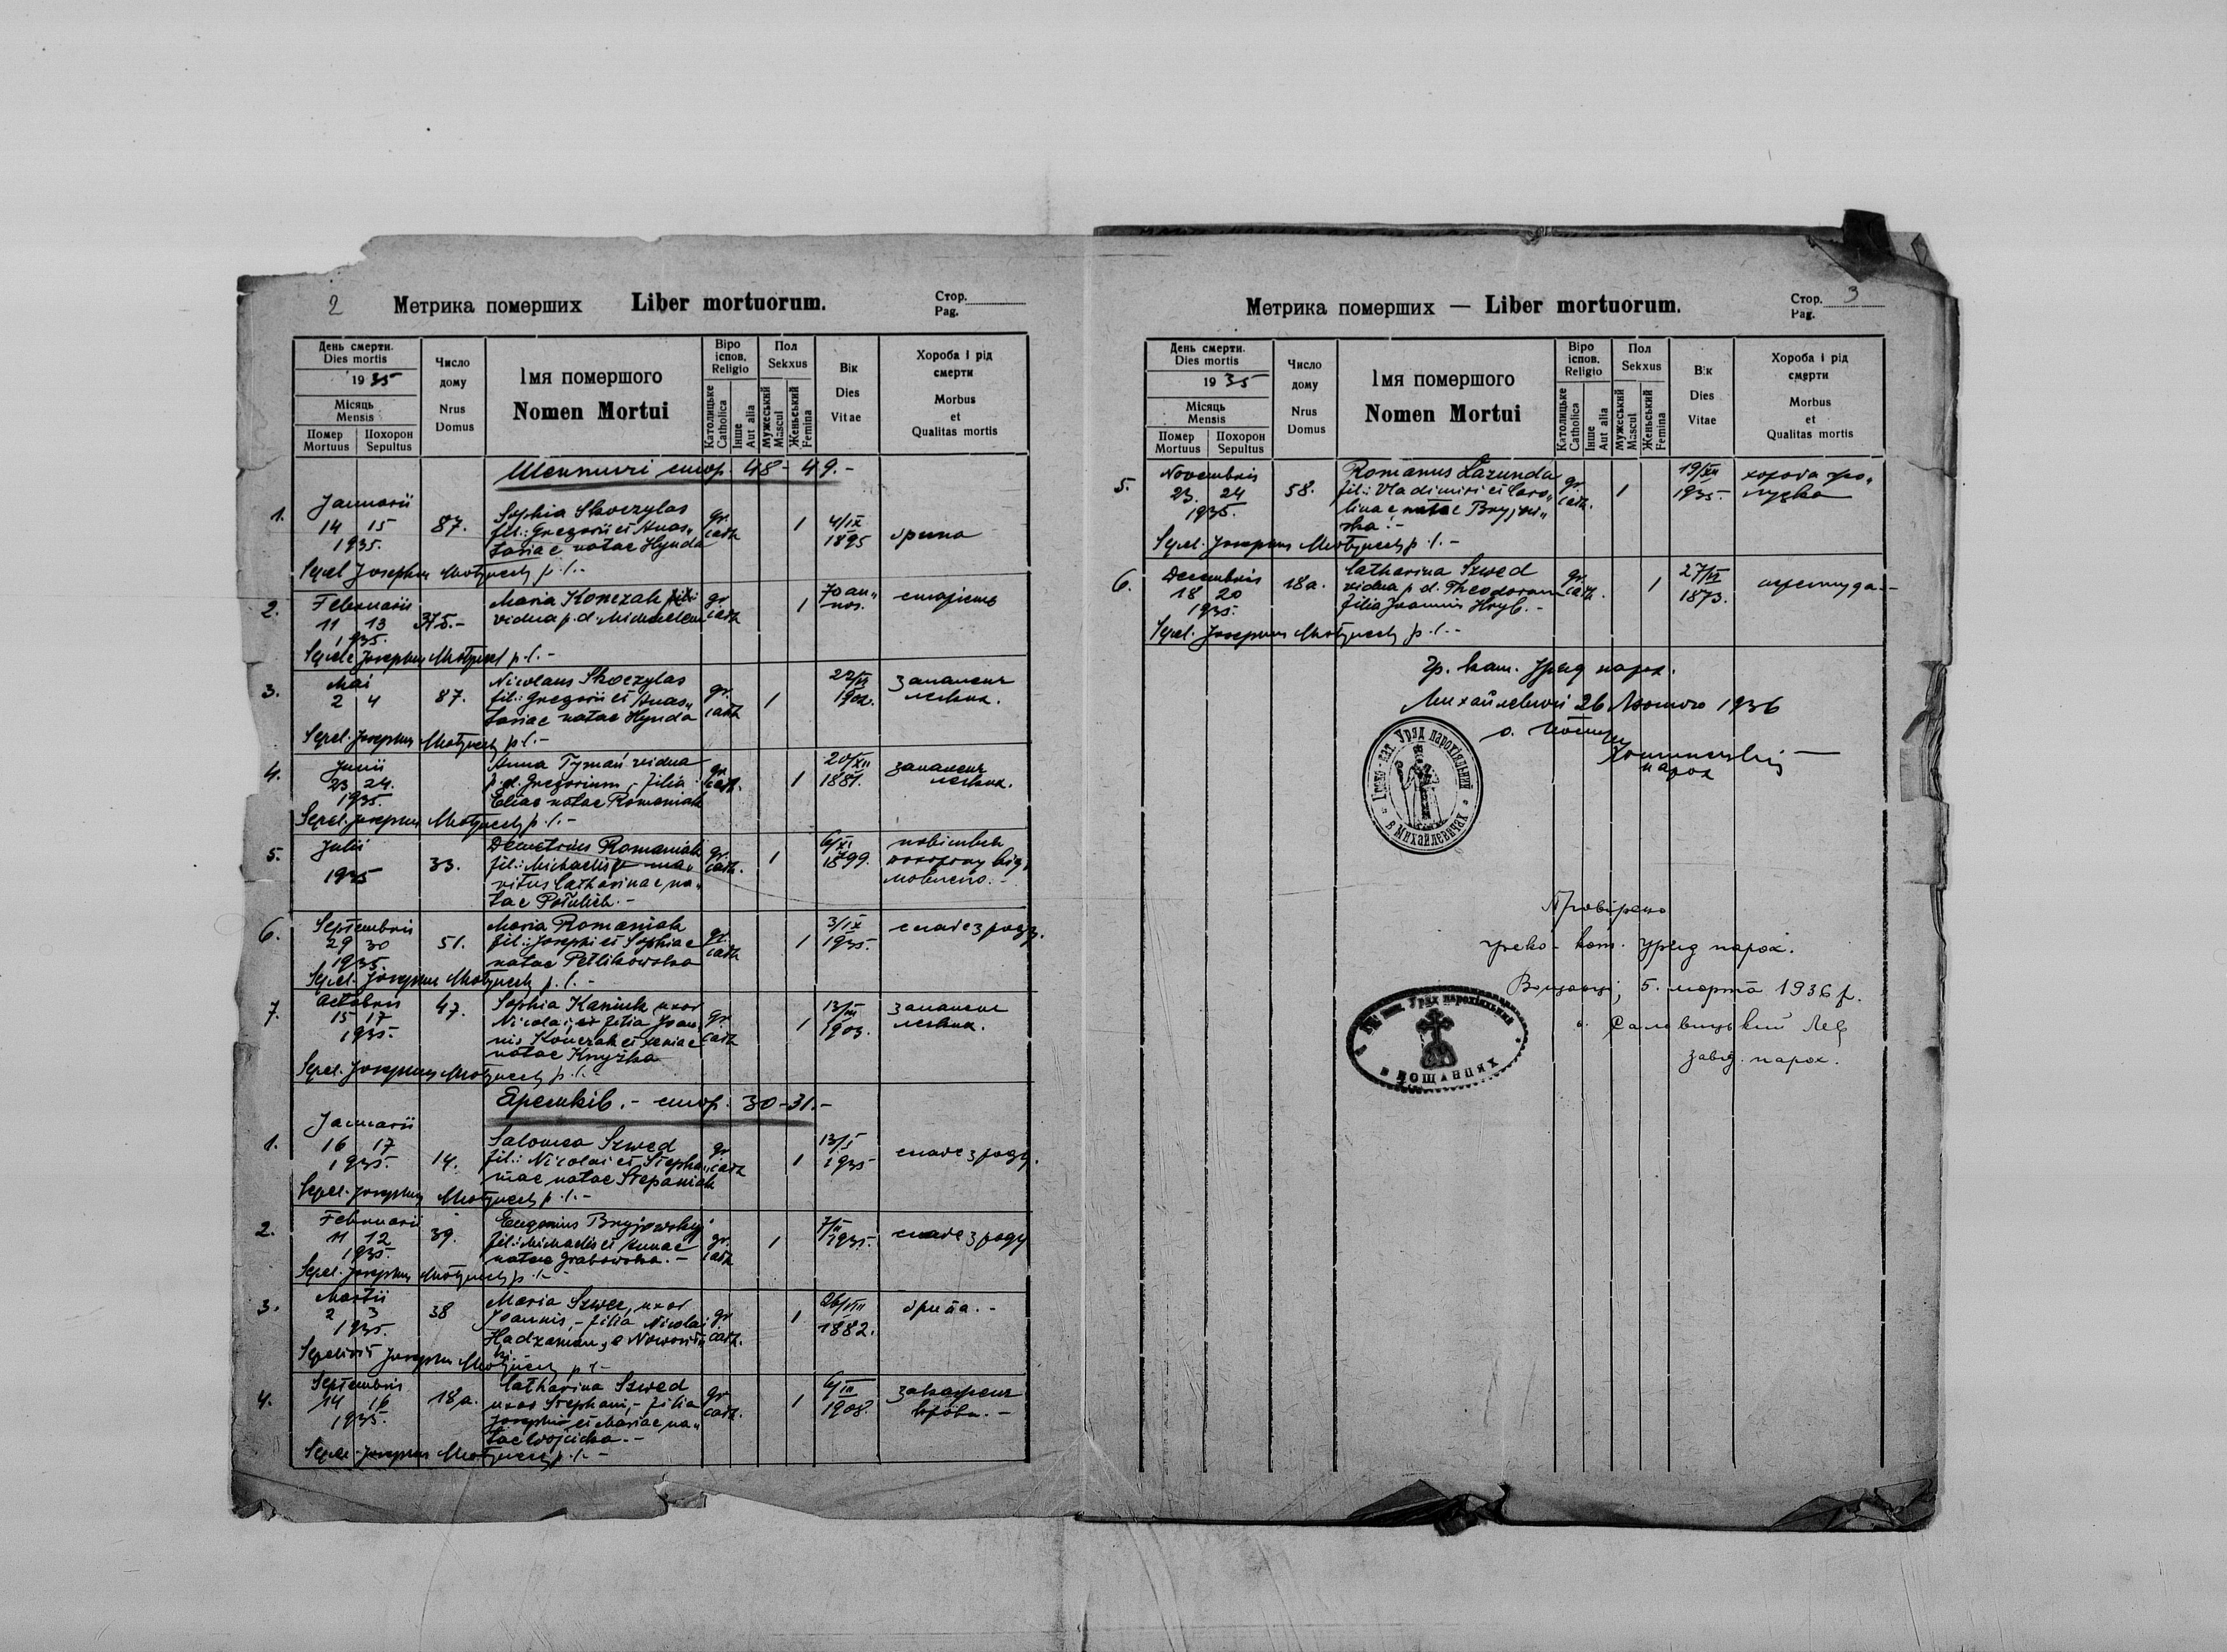 2
Метрика померших Liber mortuorum.
Стор.
Pag.
День смерти.
Dies mortis
1935
Місяць
Mensis
Помер
Mortuus
Похорон
Sepultus
Число
дому
Nrus
Domus
Імя помершого
Nomen Mortui
Віро
іспов.
Religio
Католицьке
Catholica
Інше
Aut alia
Пол
Sekxus
Мужеський
Mascul
Женьський
Femina
Вік
Dies
Vitae
Хороба і рід
смерти
Morbus
et
Qualitas mortis
стор. 48-49.-
1.
Januarii
14 15
1935.
87.
Sophia Skoczylas
fil.: Gregorii et Anas„
tasiae natae Hynda
gr.
cath
1
4/IX
1895
Sepel. Josephus
p.l.-
2.
Februarii
11 13
1935.
375.-
Maria Konczak
vidua p.d. Michaelem
gr.
cath
1
70 an„
nos.
старість
Josephus
p.l.-
3.
Mai
2 4
87.
Nicolaus Skoczylas
fil.: Gregorii et Anas„
tasiae natae Hynda
gr.
cath
1
22/VI
1902.
запаленє
легких.
Sepel. Josephus
p.l.-
4.
Junii
23 24.
1935.
Anna Tymań vidua
p.d. Gregorium,- filia
Eliae natae Romaniak
gr.
cath.
1
20/XII
1881.
запаленє
легких.
Sepel. Josephus
p.l.-
5.
Julii
1935
33.
Demetrius Romaniak
fil.: Michaelis ma„
ritus Catharinae na„
tae
gr.
cath.
1
6/XI
1899.
похорону від„
мовлено.-
6.
Septembris
29 30
1935
51.
Maria Romaniak
fil.: Josephi et Sophiae
natae Petlikowska
gr.
cath
1
3/IX
1935
слабе з роду.
Sepel. Josephus
p.l.-
7.
Octobris
15 17
1935.
47.
Sophia Kaniuk uxor
Nicolai, filia Joan
nis Konczak et Xeniae
natae Knyżka
gr.
cath
1
13/III
1903.
запаленє
легких.
Sepel. Josephus
p.l.-
стор. 30-31.-
1.
Januarii
16 17
1935.
14.
Salomea Szwed
fil.: Nicolai et Stepha„
niae natae Stepaniak
gr.
cath
1
13/I
1935
слабе з роду.
Sepel. Josephus
p.l.-
2.
Februarii
11 12
1935.
39.
Eugenius Bryjowskyj
fil.: Michaelis et Annae
natae Grabowska.-
gr.
cath
1
7/II
1935.
слабе з роду
Sepel. Josephus
p.l.-
3.
Martii
2 3
1935.
38
Maria Szwec, uxor
Joannis,- filia Nicolai
gr.
cath.
1
26/VIII
1882.
Sepelivit Josephus
p.l.-
4.
Septembris
14 16
1935.
18a.
Catharina Szwed
uxor Stephani,- filia
Josephi et Mariae na„
tae Wojcicka.-
gr.
cath.
1
6/III
1908.
закаженє
крови.-
Sepel. Josephus
p.l.-
Метрика померших — Liber mortuorum.
Стор. 3
Pag.
День смерти.
Dies mortis
1935
Місяць
Mensis
Помер
Mortuus
Похорон
Sepultus
Число
дому
Nrus
Domus
Імя помершого
Nomen Mortui
Віро
іспов.
Religio
Католицьке
Catholica
Інше
Aut alia
Пол
Sekxus
Мужеський
Mascul
Женьський
Femina
Вік
Dies
Vitae
Хороба і рід
смерти
Morbus
et
Qualitas mortis
5.
Novembris
23. 24
1935.
58.
Romanus Łazunda
fil.: Vladimiri et Caro„
linae natae Bryjow„
ska.-
gr.
cath.
1
1935.
Sepel. Josephus
p.l.-
6.
Decembris
18 20
1935.
18a.
Catharina Szwed
vidua p.d. Theodorum
filia Joannis Hryb.-
gr.
cath.
1
27/VI
1873.
Sepel. Josephus
p.l.-
Гр. кат. Уряд парох.
26 Лютого 1936
парох
Греко-кат. Уряд парохіяльний
в Михайлевичах
Провірено
греко-кат. Уряд парох.
Вощанці, 5. марта 1936 р.
Лев
завід. парох.
Гр. кат. Уряд парохіяльний
в ВОЩАНЦЯХ